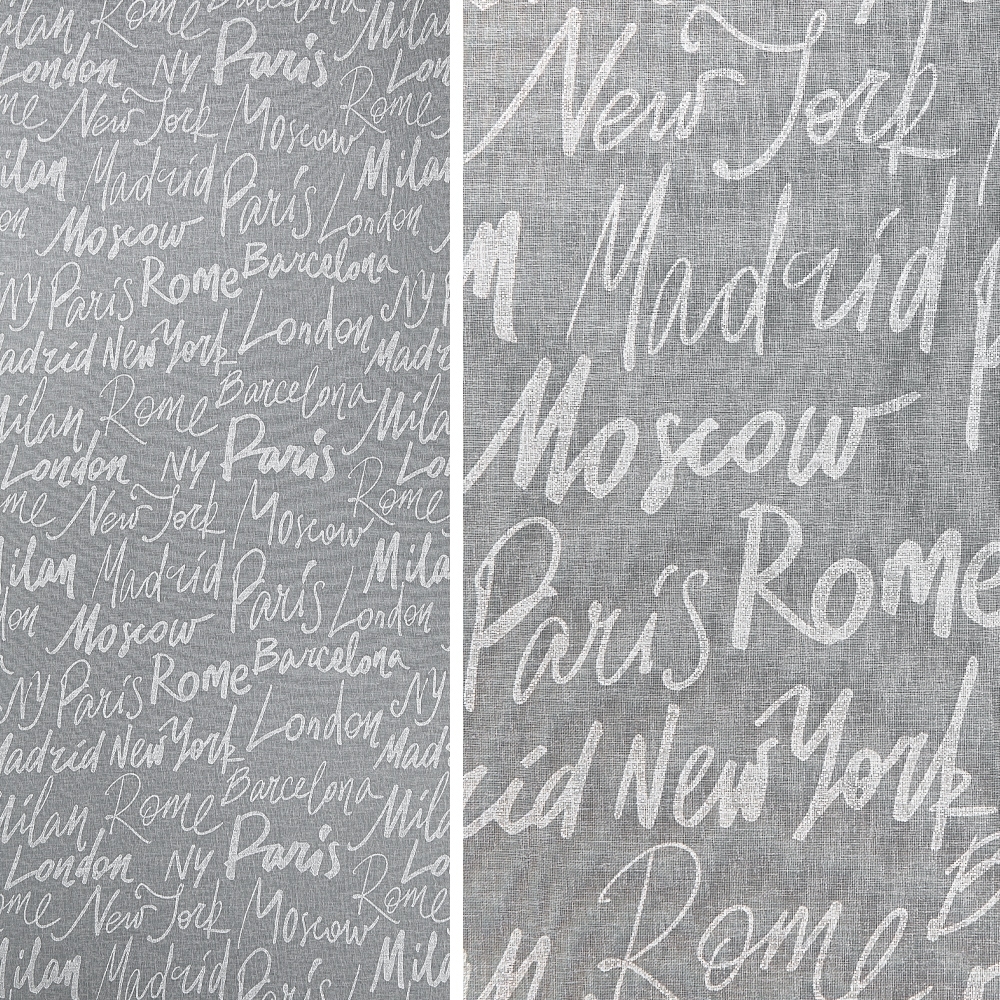 Milan Rome Barcelona Milan
London NY Paris Lon
me New York Moscow Rome
ilan Madrid Paris Milan
on Moscow London
NY Paris Rome Barcelona NY
adrid New York London Madr
Milan Rome Barcelona Mila
London NY Paris Lo
me New York Moscow Rome
ilan Madrid Paris Mila
don Moscow London
NY Paris Rome Barcelona NY
Madrid New York London Mad
Milan Rome Barcelona Mila
London NY Paris Lo
ome New York Moscow Rome
Milan Madrid Paris Mil
New York
n Madrid
Moscow
Paris Rome
id New York
Rome B